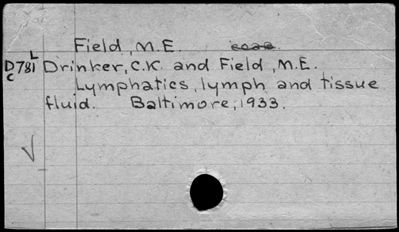 Field, M.E.
L
D781 Drinker, C.K. and Field, M.E.
C
Lymphatics, lymph and tissue
fluid. Baltimore, 1933.